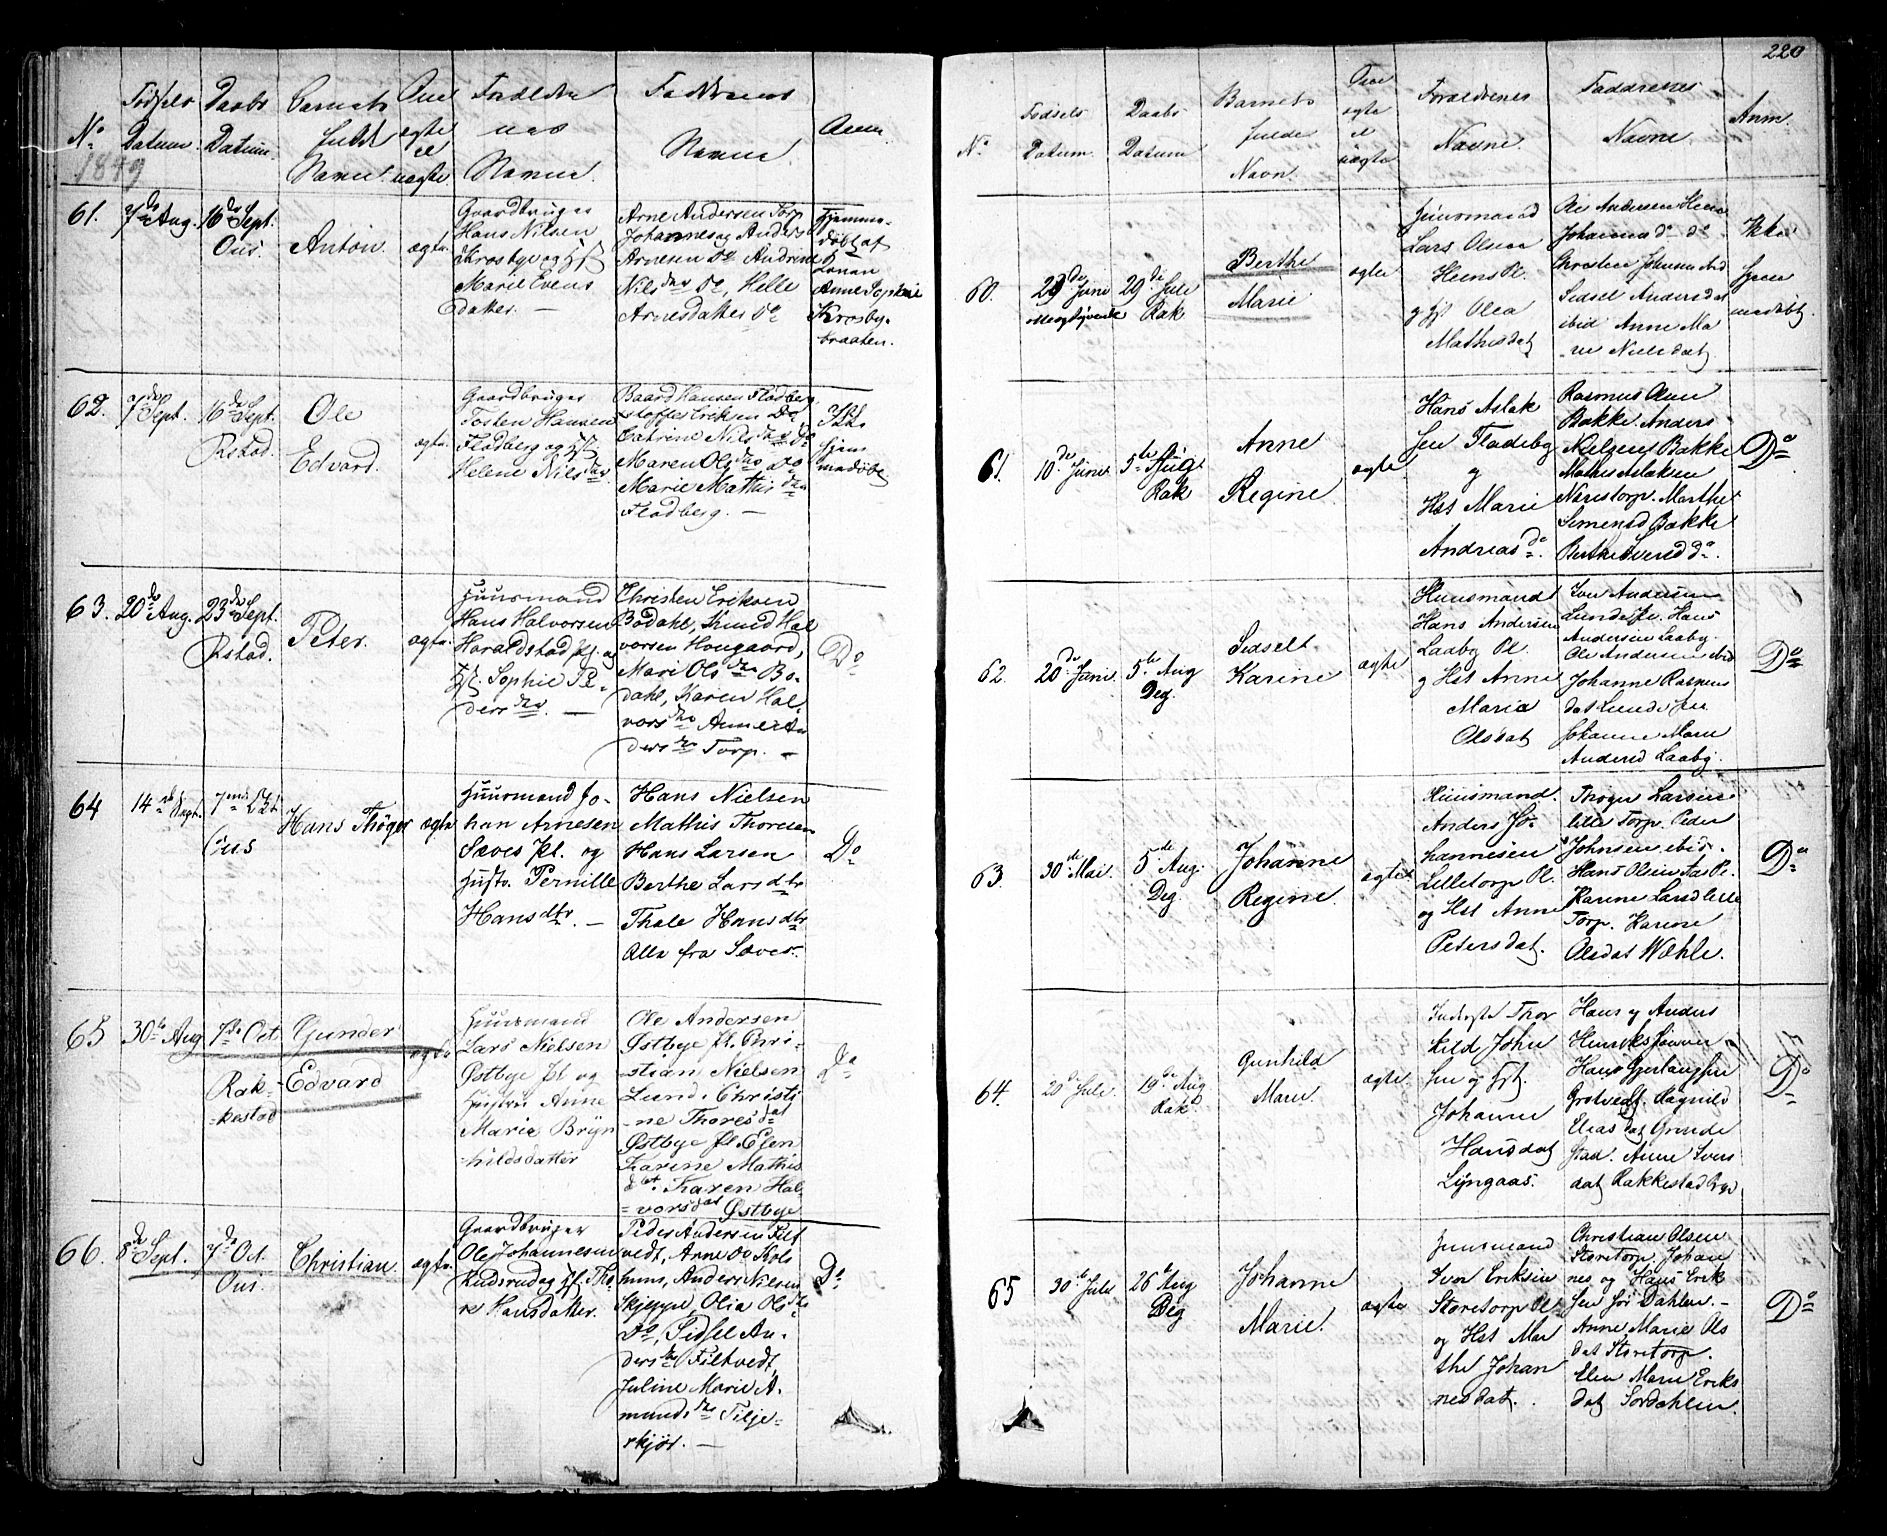 220
No
1849
Fødsels
Datum.
Daabs
Datum.
Barnets
fulde
Navne.
Om
ægte
el
uægte.
Forældre
nes
Navne.
Faddrenes
Navne.
Anm
61.
7de Aug.
16de Sept.
Ous.
Anton
ægte.
Gaardbruger
Hans Nilsen
Krosbye og Hst
Marie Evens
datter. —
Arne Andersen Torp
Johannes og Anders
Arnesen Do Andrine
Nilsdtr Do, Helle
Arnesdatter Do
Hjemme-
døbt af
Konan
Anne Sophie
Krosby-
braaten.
62.
7de Sept.
16de Sept.
Rstad.
Ole
Edvard.
ægte.
Gaardbruger
Tosten Hansen
Fladberg og Hst
Helene Nilsdtr
Baard Hansen Fladberg
Stoffer Eriksen Do
Catrine Nilsdtr Do
Maren Olsdtr Do
Marie Mathisdtr
Fladberg. —
Ikke
hjem
medøbt
63.
20de Aug.
23de Sept.
Rstad.
Peter.
ægte.
Huusmand
Hans Halvorsen
Haraldstad pl. og
Hst. Sophie Pe-
dersdtr. —
Christen Eriksen
Bødahl, Svend Hal
vorsen Hougaard,
Mari Olsdtr Bø-
dahl, Karen Hal-
vorsdtr Anne An
dersdtr Torp. —
Do
64
14de Sept.
7nde Okt.
Ous
Hans Thøger
ægte
Huusmand Jo-
han Arnesen
Sæves Pl. og
Hustr. Pernille
Hansdtr. —
Hans Nielsen
Mathis Thoresen
Hans Larsen
Berthe Larsdtr
Thale Hansdtr
Alle fra Sæves.
Do
65
30te Aug
7de Oct
Rak-
-kestad
Gunder
Edvard
ægte
Huusmand
Lars Nielsen
Østbye pl og
Hustru Anne
Marie Bryn
hildsdatter
Ole Andersen
Østbye pl. Chri-
stian Nielsen
Lund. Christi
-ne Thoresdat
Østbye pl. Elen
Karine Mathis
dat. Karen Hal-
-vorsdat Østbye
Do
66.
8de Sept.
7de Oct.
Ous.
Christian.
ægte.
Gaardbruger
Ole Johannesen
Rudsrud og Hst. Tho-
re Hansdatter.
Peder Andersen Filt
vedt, Arne Do Kols
huus, Anders Nilsen
Skjeppe, Olia Olsdtr
Do, Sidsel An-
dersdtr Filtvedt,
Juline Marie A-
mundsdtr Tilje-
skjør. —
Do
No
Fødsels
Datum.
Daabs
Datum
Barnets
fulde
Navn.
Om
ægte
el
uægte
Forældrenes
Navne.
Faddrenes
Navne
Anm.
60.
28de Juni
otteogtyvende
29de Juli
Rak
Berthe
Marie
ægte
Huusmand
Lars Olsen
Heens Pl.
og Hst Olea
Mathisdat
Ole Andersen Heen
Johannes do do
Christen Johnsen ibid
Sidsel Andersdat
ibid Anne Ma
rie Nielsdat
Ikke
hjem
medøbt
61.
10de Juni
5te Aug
Rak
Anne
Regine
ægte
Hans Aslak
sen Fladeby
og
Hst Marie
Andreasd.
Rasmus Olsen
Bakke Anders
Nielsen Bakke
Mathis Aslaksen
Narestorp. Marthe
Simensd Bakke
Berthe Iversd do.
Do
62.
20de Juni.
5te Aug
Deg.
Sidselt
Karine
ægte
Huusmand
Hans Andersen
Laaby Pl.
og Hst Anne
Maria
Olsdat
Iver Andersen
Lunde Pl. Hans
Andersen Laaby.
Ole Andersen ibid
Johanne Rasmus
dat Lunde
Johanne Marie
Andersd Laaby.
Do
63.
30te Mai.
5te Aug.
Deg.
Johanne
Regine.
ægte
Huusmand.
Anders Jo-
hannesen
Lilletorp Pl.
og Hst Anne
Petersdat.
Thøger Larsen
lille Torp. Peder
Johnsen ibid.
Hans Olsen
Karine Larsd lille
Torp. Karine
Olsdat Wæhle.
Do
64.
20de Juli.
19de Aug
Rak
Gunhild
Marie.
ægte
Inderste Thor
kild John
sen og Hst.
Johanne
Hansdat
Lyngaas.
Hans og Anders
Henriksønner
Hans Gjerlaugsen
Grotvedt. Ragnild
Eliasdat Grinde
stad. Anne Ivers
dat Rakkestad
Do
65
30te Juli
26te Aug
Deg
Johanne
Marie.
ægte
Huusmand
Iver Eriksen
Storetorp Pl
og Hst Mar
the Johan
nesdat.
Christian Olsen
Storetorp Johan
nes og Hans Erik
sen Sør Dahlen. —
Anne Marie Ols
dat Storetorp.
Elen Marie Eriks
dat Sørdahlen.
Do